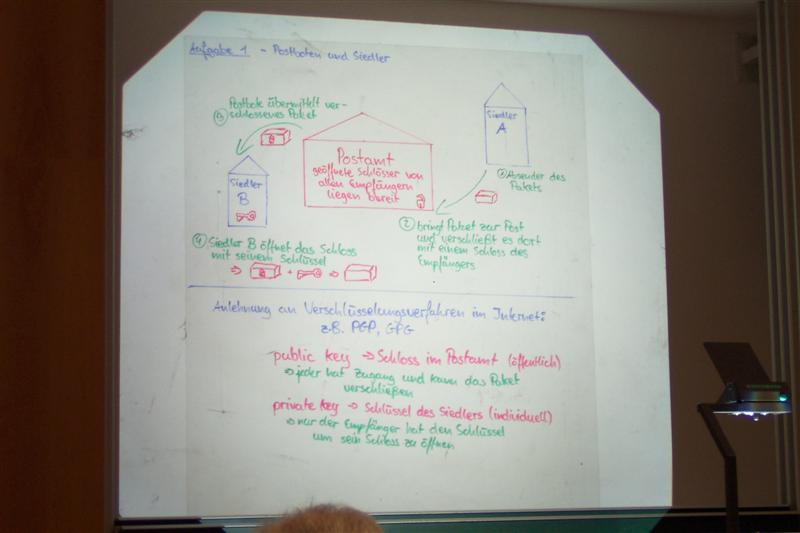 Aufgabe 1 - Postboten und Siedler
③ Postbote übermittelt ver-
schlossenes Paket
Siedler
A
Postamt
geöffnete Schlösser von
allen Empfängern
liegen bereit
① Absender des
Pakets
Siedler
B
② bringt Paket zur Post
und verschließt es dort
mit einem Schloss des
Empfängers
④ Siedler B öffnet das Schloss
mit seinem Schlüssel
⇒ + ⇒
Anlehnung an Verschlüsselungsverfahren im Internet:
z.B. PGP, GPG
public key → Schloss im Postamt (öffentlich)
⇒ jeder hat Zugang und kann das Paket
verschließen
private key → Schlüssel des Siedlers (individuell)
⇒ nur der Empfänger hat den Schlüssel
um sein Schloss zu öffnen